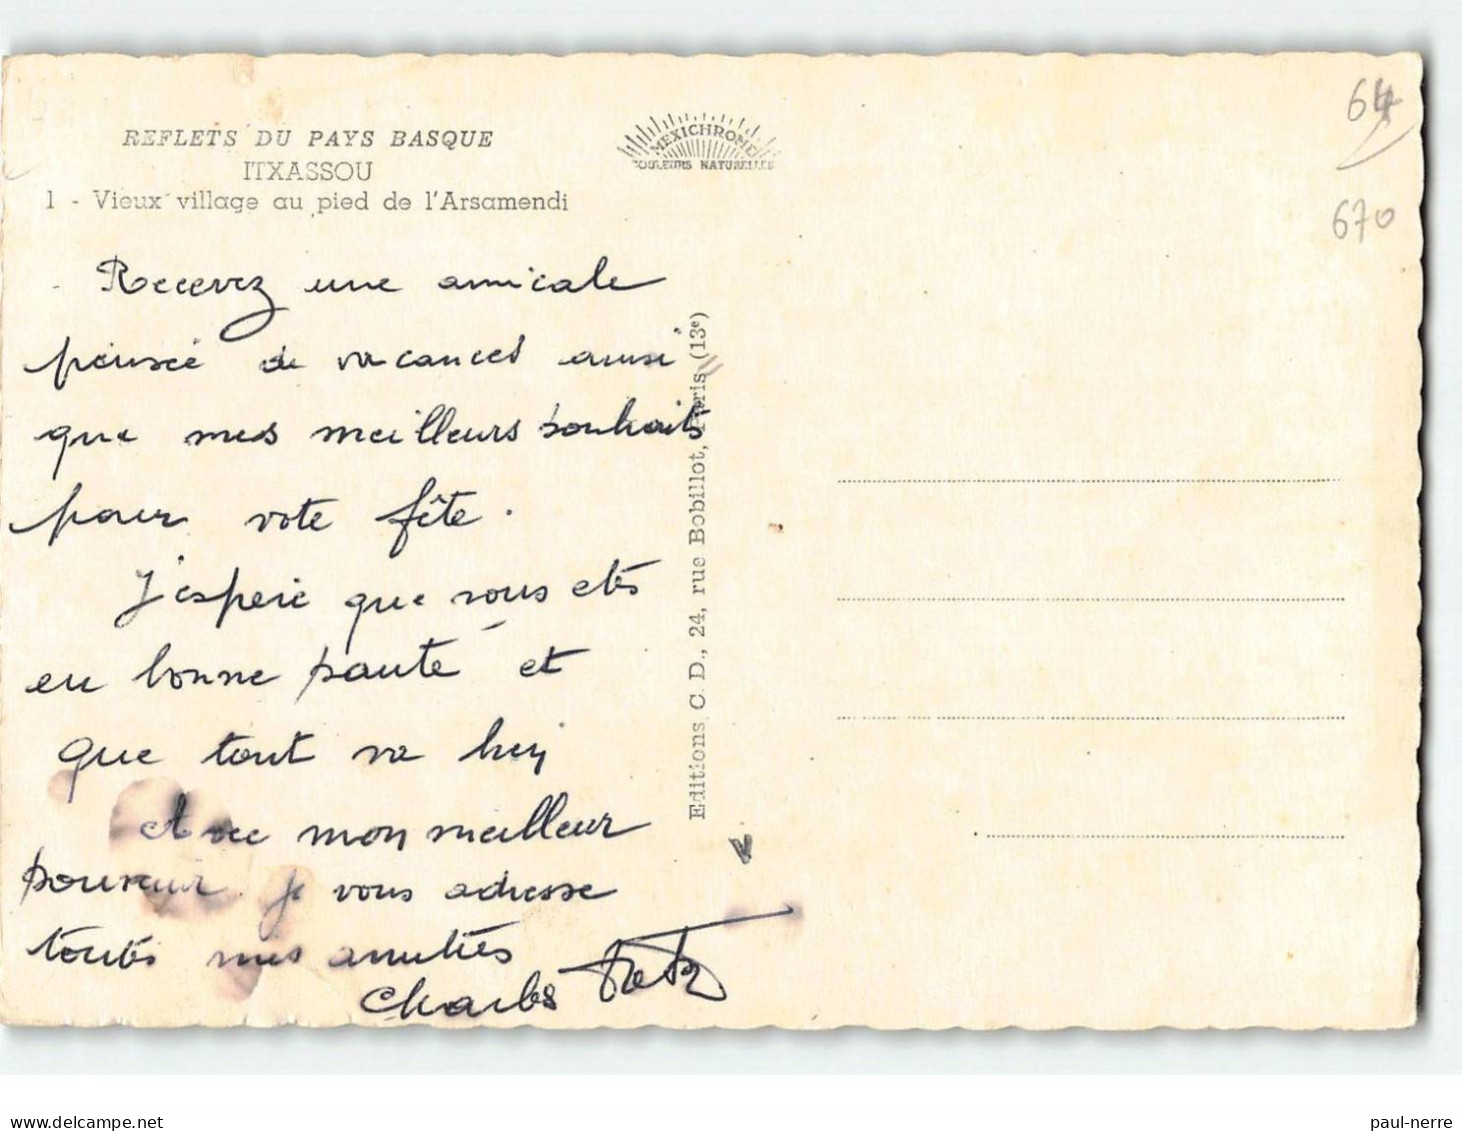 REFLETS DU PAYS BASQUE
ITXASSOU
1 - Vieux village au pied de l'Arsamendi
MEXICHROME
COULEURS NATURELLES
64
670
Recevez une amicale
pensée de vacances ainsi
que mes meilleurs souhaits
pour vote fête.
J'espère que vous etes
en bonne santé et
que tout va bien
Avec mon meilleur
souvenir je vous adresse
toutes mes amitiés
Charles
Editions C. D., 24, rue Bobillot, Paris (13e)
paul-nerre